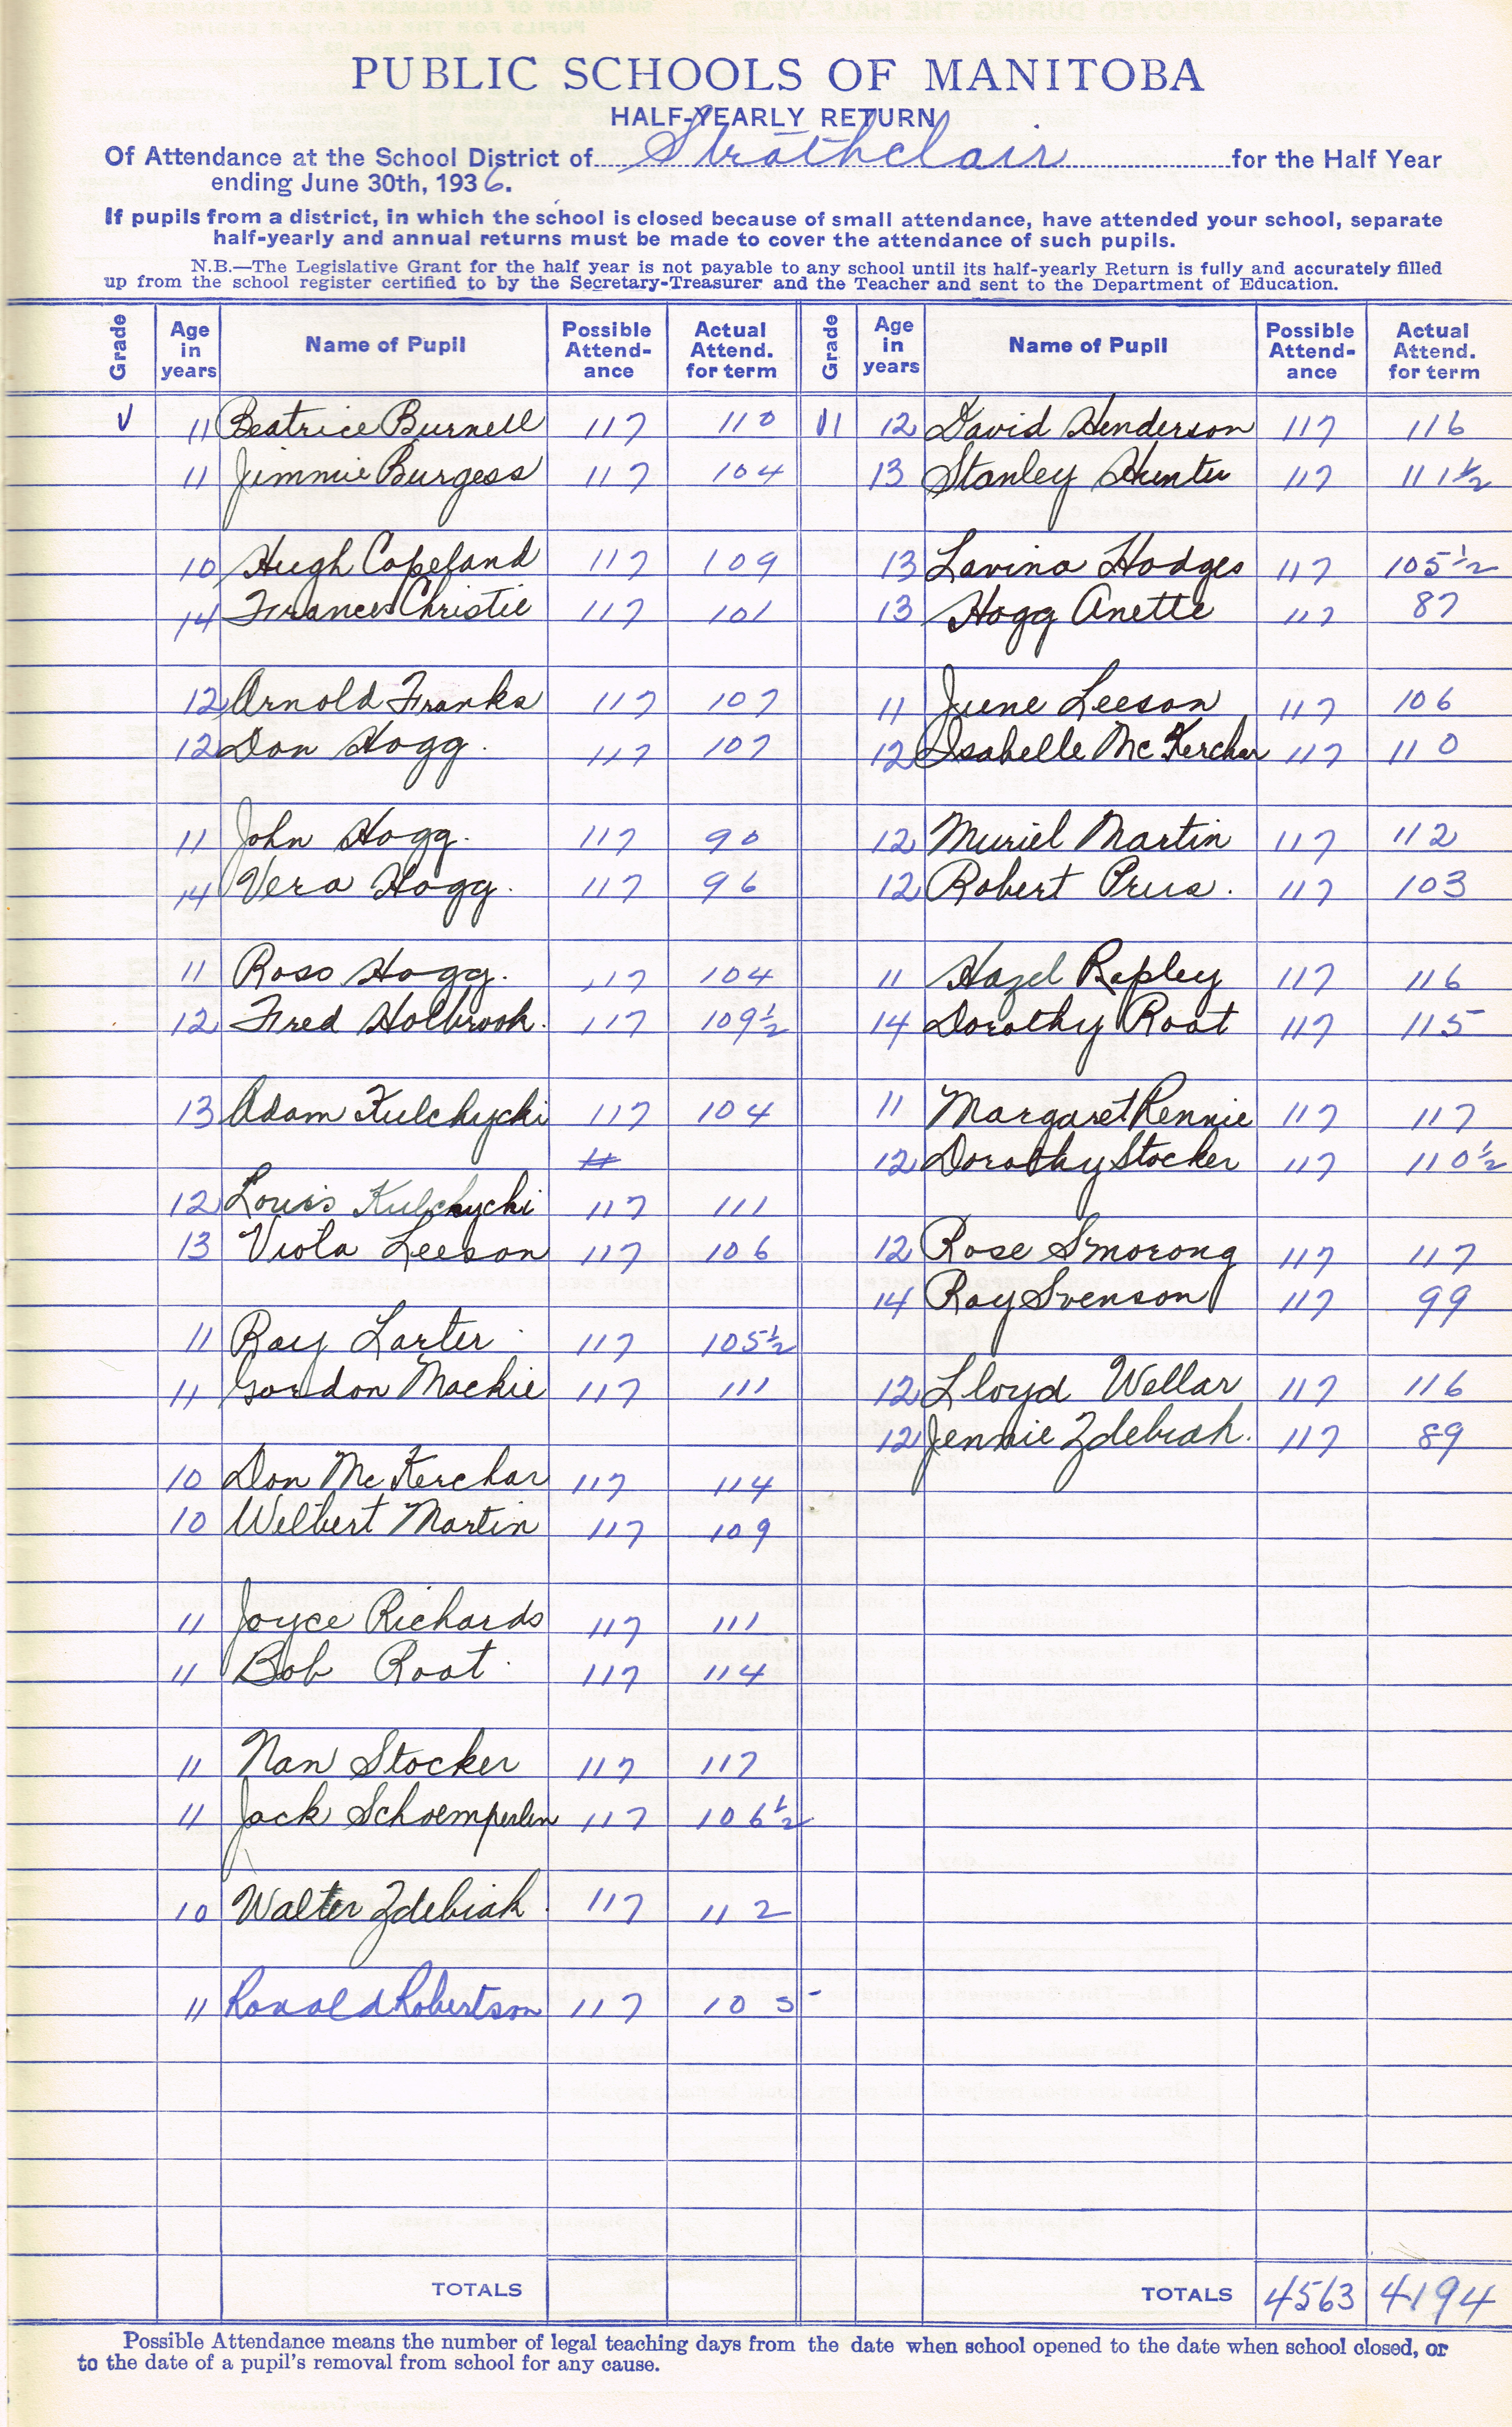 PUBLIC SCHOOLS OF MANITOBA
HALF-YEARLY RETURN
Of Attendance at the School District of Strathclair for the Half Year
ending June 30th, 1936.
If pupils from a district, in which the school is closed because of small attendance, have attended your school, separate
half-yearly and annual returns must be made to cover the attendance of such pupils.
N.B.—The Legislative Grant for the half year is not payable to any school until its half-yearly Return is fully and accurately filled
up from the school register certified to by the Secretary-Treasurer and the Teacher and sent to the Department of Education.
Grade Age in years Name of Pupil Possible Attend-ance Actual Attend. for term Grade Age in years Name of Pupil Possible Attend-ance Actual Attend. for term
V 11 Beatrice Burnell 117 110 VI 12 David Henderson 117 116
11 Jimmie Burgess 117 104 13 Stanley Hunter 117 111½
10 Hugh Copeland 117 109 13 Lavina Hodges 117 105½
14 Frances Christie 117 101 13 Hogg Anette 117 87
12 Arnold Franks 117 107 11 June Leeson 117 106
12 Don Hogg. 117 107 12 Isabelle McKerchar 117 110
11 John Hogg. 117 90 12 Muriel Martin 117 112
14 Vera Hogg. 117 96 12 Robert Prus. 117 103
11 Ross Hogg. 117 104 11 Hazel Rapley 117 116
12 Fred Holbrook. 117 109½ 14 Dorothy Root 117 115
13 Adam Kulchycki 117 104 11 Margaret Rennie 117 117
11 12 Dorothy Stocker 117 110½
12 Louis Kulchycki 117 111
13 Viola Leeson 117 106 12 Rose Smorong 117 117
14 Roy Svenson 117 99
11 Ray Larter 117 105½
11 Gordon Mackie 117 111 12 Lloyd Wellar 117 116
12 Jennie Zdebiak. 117 89
10 Don McKerchar 117 114
10 Wilbert Martin 117 109
11 Joyce Richards 117 111
11 Bob Root 117 114
11 Nan Stocker 117 117
11 Jack Schoemperlen 117 106½
10 Walter Zdebiak. 117 112
11 Ronald Robertson 117 105
TOTALS TOTALS 4563 4194
Possible Attendance means the number of legal teaching days from the date when school opened to the date when school closed, or
to the date of a pupil's removal from school for any cause.